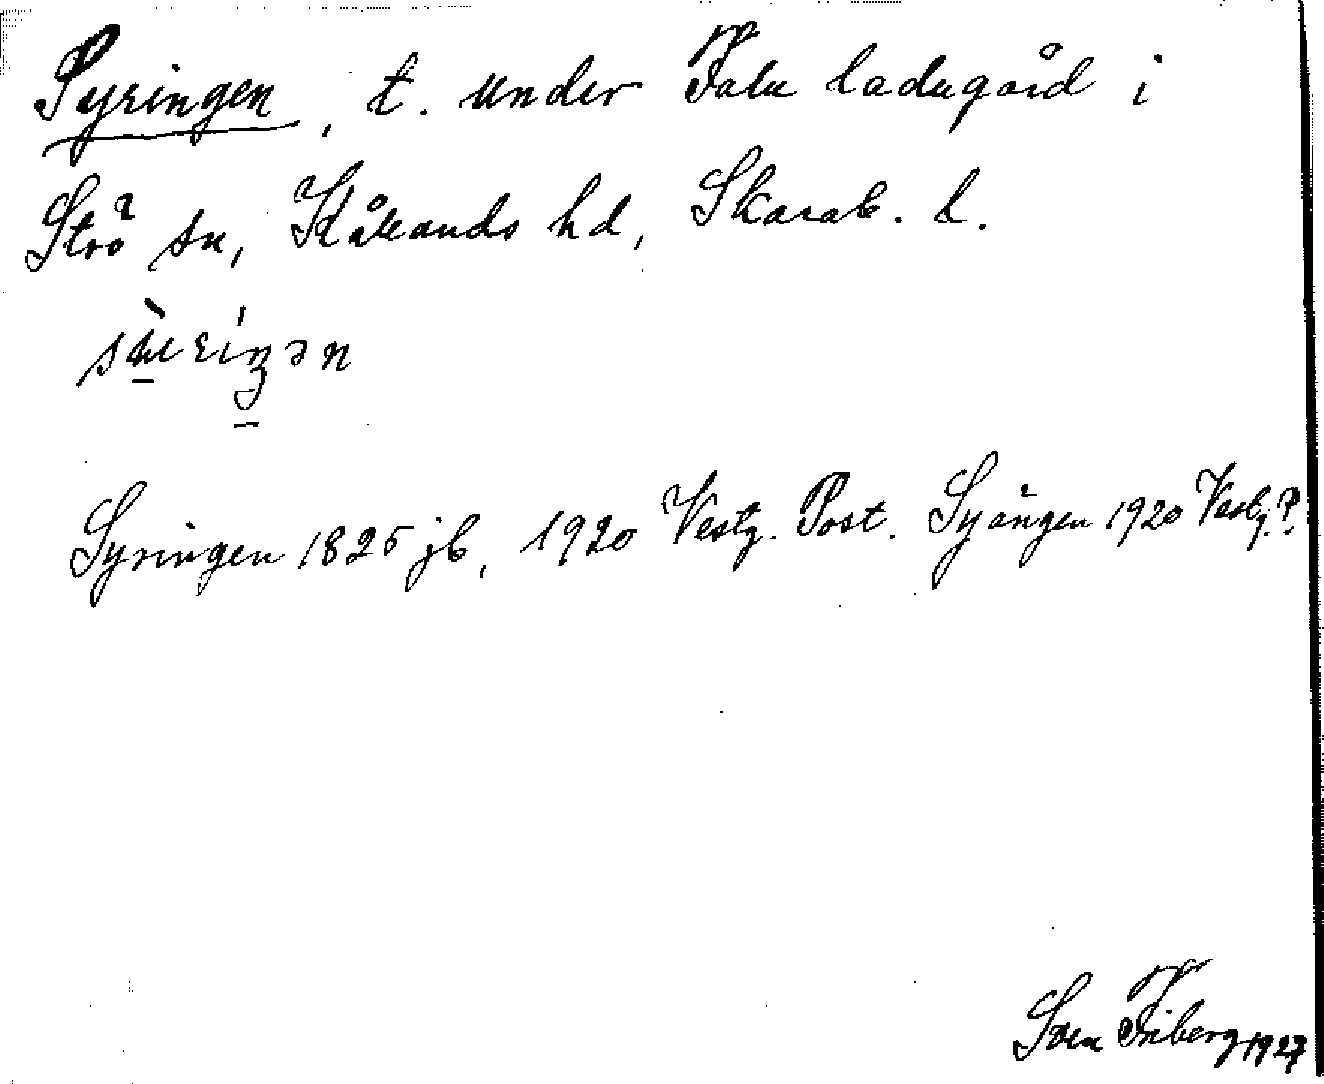 Syringen, t. under Fale ladugård i
Strö sn, Kållands hd, Skarab. l.
Syringen 1825 jb, 1920 Vestg. Post. Syången 1920 Vestg. P.
Sven Friberg 1927